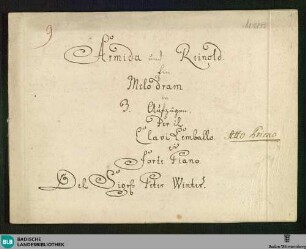 9
Armida und Reinold.
Ein
Melodram
in
3. Aufzügen.
Per il
Clavi Cembalo. Atto Primo
o
Forte Piano
Del Sigre Peter Winter.
BLB BADISCHE
LANDESBIBLIOTHEK